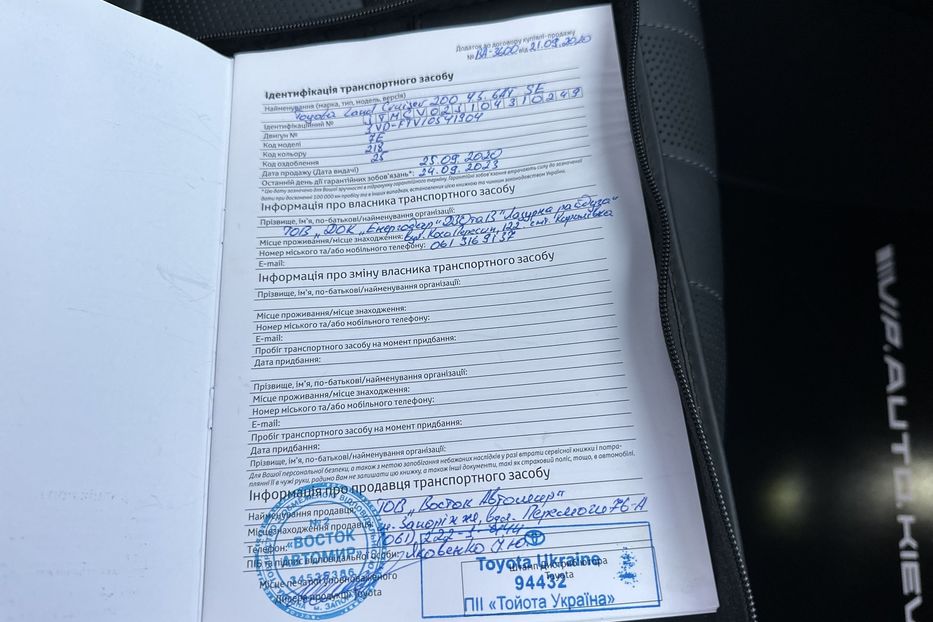 Додаток до договору купівлі-продажу
№ ВА-3600 від 21.09.2020
Ідентифікація транспортного засобу
Найменування (марка, тип, модель, версія) Toyota Land Cruiser 200 4.5 6AT SE
Ідентифікаційний № JTMCV02J104310249
Двигун № 1VD-FTV10541904
Код моделі 7E
Код кольору 218
Код оздоблення 25
Дата продажу (Дата видачі) 25.09.2020
Останній день дії гарантійних зобов'язань*: 24.09.2023
*Цю дату зазначено для Вашої зручності в підрахунку гарантійного терміну. Гарантійні зобов'язання втрачають силу до зазначеної
дати при досягненні 100 000 км пробігу та в інших випадках, встановлених цією книжкою та чинним законодавством України.
Інформація про власника транспортного засобу
Прізвище, ім'я, по-батькові/найменування організації:
ТОВ „ДОК „Енергодар" „Лазурна
Місце проживання/місце знаходження: вул. Коса Пересип, 122 смт. Кирилівка
Номер міського та/або мобільного телефону: 061 316 9137
E-mail:
Інформація про зміну власника транспортного засобу
Прізвище, ім'я, по-батькові/найменування організації:
Місце проживання/місце знаходження:
Номер міського та/або мобільного телефону:
E-mail:
Пробіг транспортного засобу на момент придбання:
Дата придбання:
Прізвище, ім'я, по-батькові/найменування організації:
Місце проживання/місце знаходження:
Номер міського та/або мобільного телефону:
E-mail:
Пробіг транспортного засобу на момент придбання:
Дата придбання:
Прізвище, ім'я, по-батькові/найменування організації:
Для Вашої персональної безпеки, а також з метою запобігання небажаних наслідків у разі втрати сервісної книжки і потра-
пляння її в чужі руки, радимо Вам не залишати цю книжку, а також інші документи, такі як страховий поліс, тощо, в автомобілі.
Інформація про продавця транспортного засобу
Найменування продавця: ТОВ „Восток Автомир"
Місцезнаходження продавця: м. Запоріжжя, вул. Перемоги 76-А
Телефон: (061) 222-3
ПІБ та підпис відповідальної особи: Яковенко Ю
Місце печатки уповноваженого
дилера продукції Toyota
Штамп дистриб'ютора
Toyota
№ 2
«ВОСТОК
АВТОМИР»
Toyota Ukraine
94432
ПІІ «Тойота Україна»
VIP.AUTO.KIEV